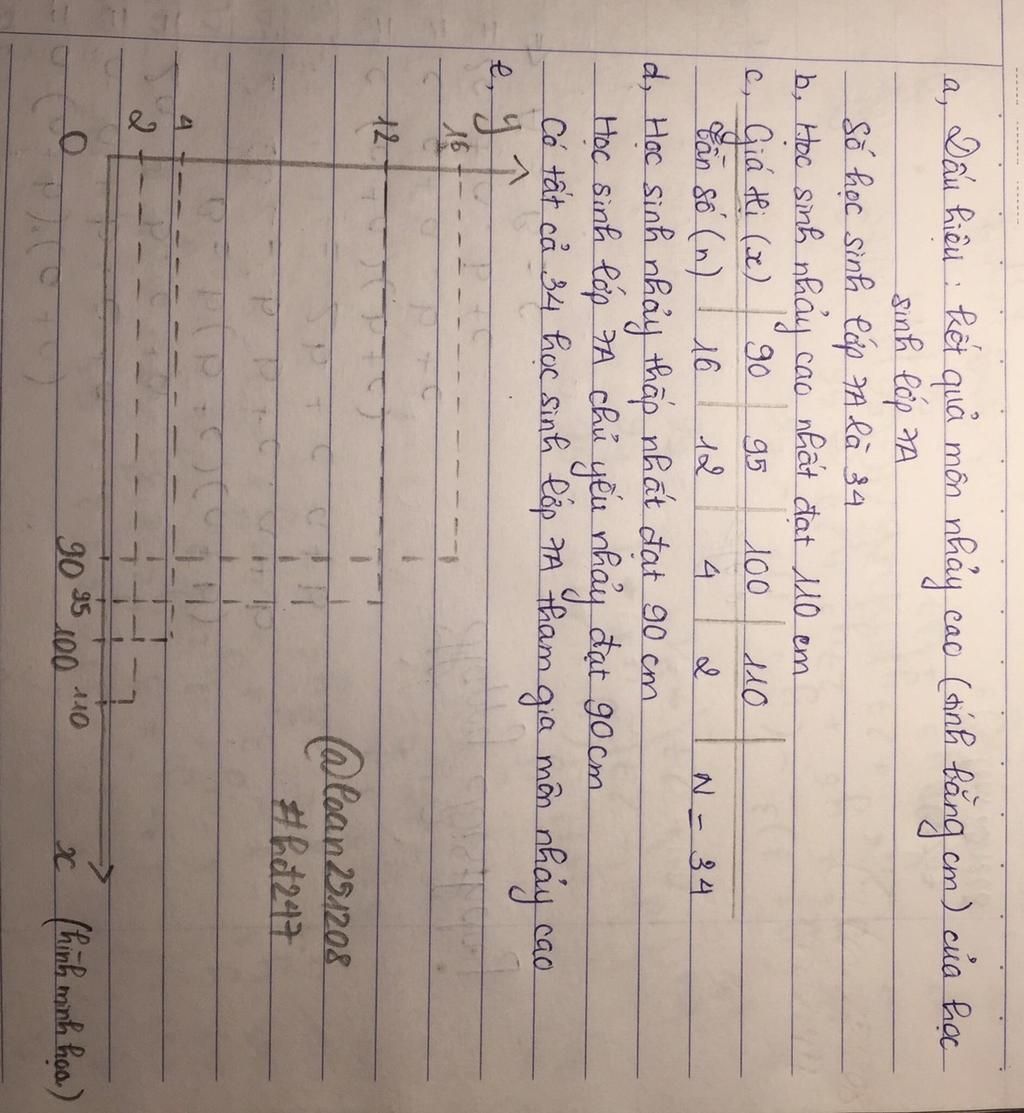 a, Dấu hiệu : kết quả môn nhảy cao (tính bằng cm) của học
sinh lớp 7A
Số học sinh lớp 7A là 34
b, Học sinh nhảy cao nhất đạt 110 cm
c, Giá trị (x) 90 95 100 110
Tần số (n) 16 12 4 2 N = 34
d, Học sinh nhảy thấp nhất đạt 90 cm
Học sinh lớp 7A chủ yếu nhảy đạt 90 cm
Có tất cả 34 học sinh lớp 7A tham gia môn nhảy cao
e, y
16
12
4
2
0 90 95 100 110 x (hình minh họa)
@loan251208
#hd247